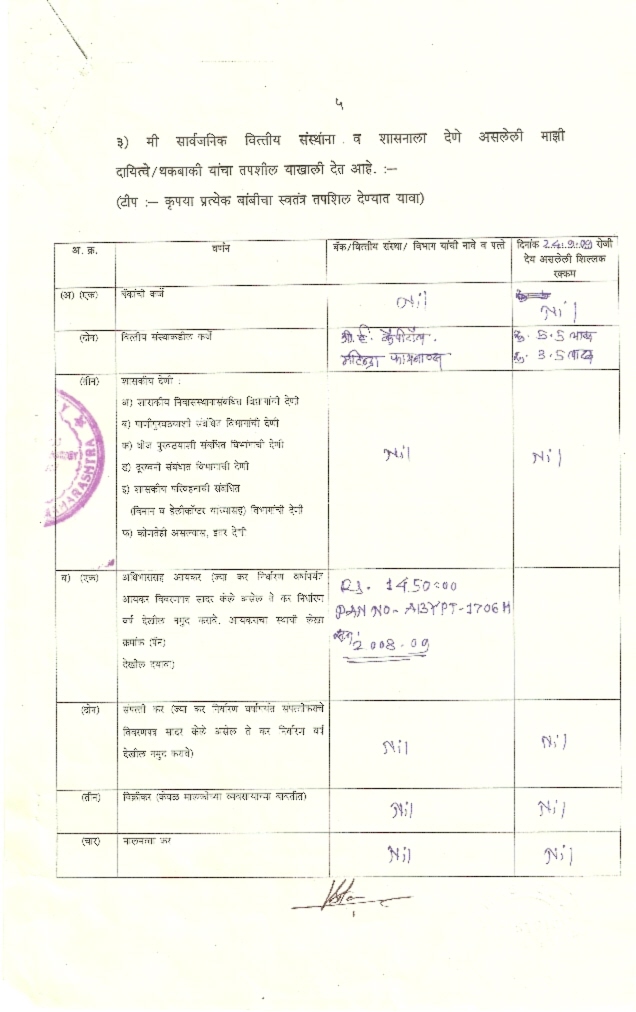 ५
३) मी सार्वजनिक वित्तीय संस्थांना व शासनाला देणे असलेली माझी
दायित्वे/थकबाकी यांचा तपशील याखाली देत आहे. :—
(टीप :— कृपया प्रत्येक बांबीचा स्वतंत्र तपशिल देण्यात यावा)
अ. क्र. वर्णन बँक/वित्तीय संस्था/ विभाग यांची नावे व पत्ते दिनांक 24.9.09 रोजी
देय असलेली शिल्लक
रक्कम
(अ) (एक) बँकांची कर्जे Nil Nil
(दोन) वित्तीय संस्थाकडील कर्जे जी.ई. कैपीटल. रु. 5.5 लाख
महिन्द्रा फायनान्स रु. 3.5 लाख
(तीन) शासकीय देणी :
अ) शासकीय निवासस्थानासंबंधित विभागांची देणी
ब) पाणीपुरवठ्याशी संबंधित विभागांची देणी
क) वीज पुरवठ्याशी संबंधित विभागांची देणी
ड) दूरध्वनी संबंधात विभागाची देणी
Nil Nil
इ) शासकीय परिवहनाशी संबंधित
(विमान व हेलीकॉप्टर यांच्यासह) विभागांची देणी
फ) कोणतेही असल्यास, इतर देणी
MAHARASHTRA
ब) (एक) अधिभारासह आयकर (ज्या कर निर्धारण वर्षापर्यंत
आयकर विवरणपत्र सादर केले असेल ते कर निर्धारण
वर्ष देखील नमूद करावे. आयकराचा स्थायी लेखा
क्रमांक (पॅन)
देखील द्यावा)
Rs. 1450=00
PAN NO- ABYPT-1706H
2008-09
(दोन) संपत्ती कर (ज्या कर निर्धारण वर्षापर्यंत संपत्तीकराचे
विवरणपत्र सादर केले असेल ते कर निर्धारण वर्ष
देखील नमूद करावे) Nil Nil
(तीन) विक्रीकर (केवळ मालकीच्या व्यवसायाच्या बाबतीत) Nil Nil
(चार) मालमत्ता कर Nil Nil